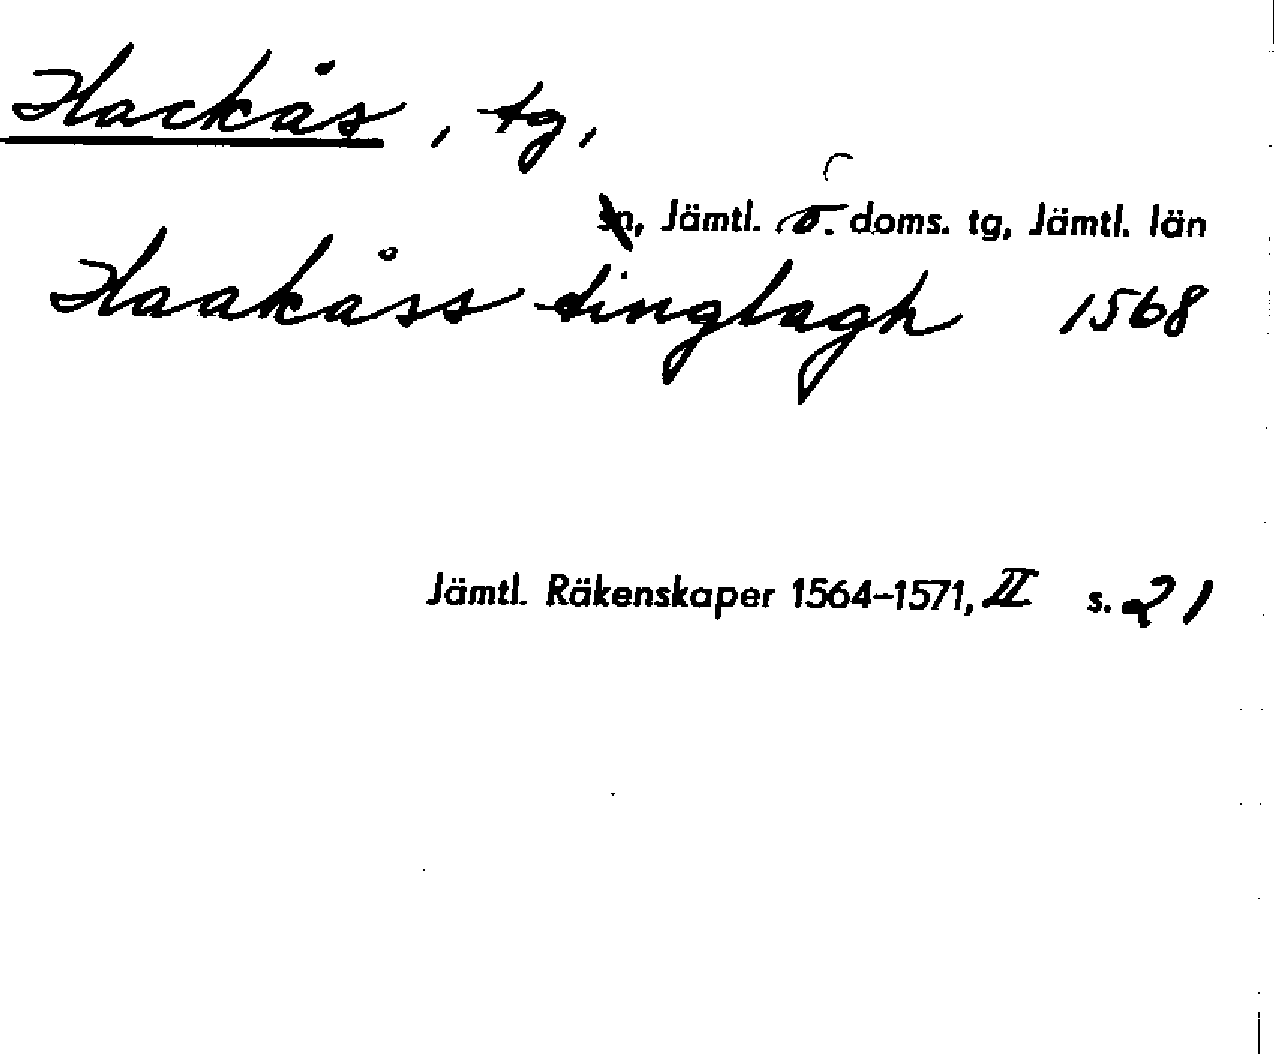 Hackås, tg,
sn, Jämtl. ö. doms. tg, Jämtl. län
Haakåss tinglagh 1568
Jämtl. Räkenskaper 1564–1571, II s. 21